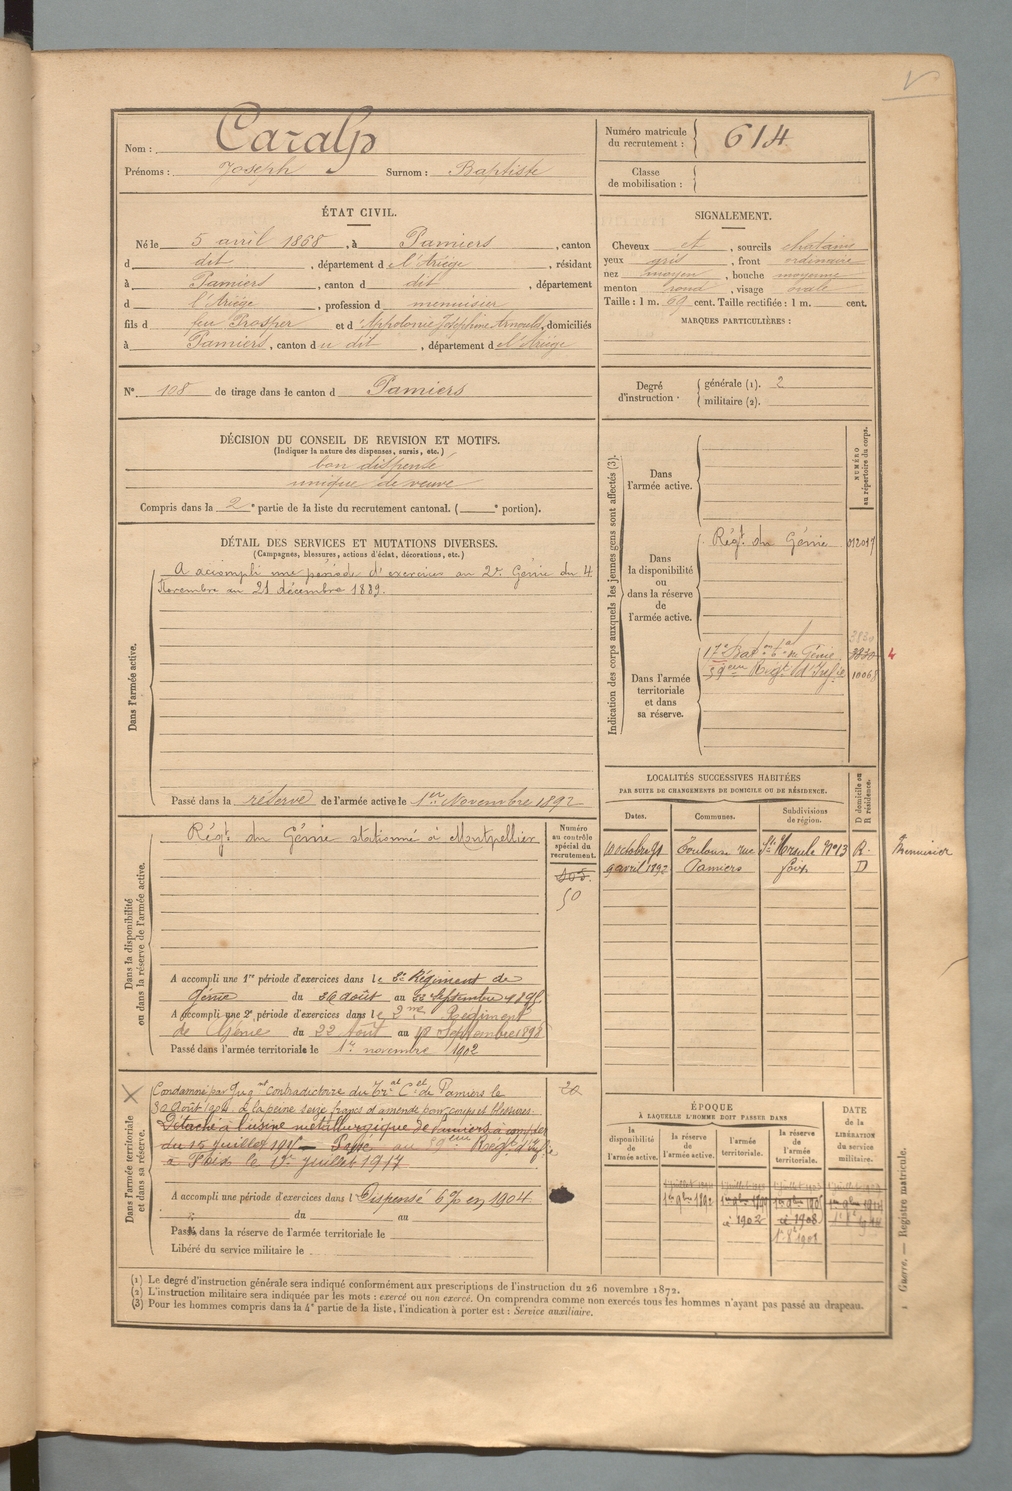 Nom : Caralp
Prénoms : Joseph Surnom : Baptiste
Numéro matricule du recrutement : 614
Classe de mobilisation :
ÉTAT CIVIL.
Né le 5 avril 1868, à Pamiers, canton
d dit, département d e l'Ariège, résidant
à Pamiers, canton d dit, département
d l'Ariège, profession d menuisier
fils d feu Prosper et d Appolonie Joséphine Arnould, domiciliés
à Pamiers, canton d u dit, département d e l'Ariège
SIGNALEMENT.
Cheveux et, sourcils chatains
yeux gris, front ordinaire
nez moyen, bouche moyenne
menton rond, visage ovale
Taille : 1 m. 69 cent. Taille rectifiée : 1 m. cent.
MARQUES PARTICULIÈRES :
N° 108 de tirage dans le canton d Pamiers
Degré d'instruction
générale (1). 2
militaire (2).
DÉCISION DU CONSEIL DE REVISION ET MOTIFS.
(Indiquer la nature des dispenses, sursis, etc.)
bon dispensé
unique de veuve
Compris dans la 2e partie de la liste du recrutement cantonal. ( e portion).
DÉTAIL DES SERVICES ET MUTATIONS DIVERSES.
(Campagnes, blessures, actions d'éclat, décorations, etc.)
Dans l'armée active.
A accompli une période d'exercices au 2e Génie du 4
Novembre au 21 décembre 1889.
Passé dans la réserve de l'armée active le 1er Novembre 1892
Indication des corps auxquels les jeunes gens sont affectés (3).
NUMÉRO au répertoire du corps.
Dans l'armée active.
Dans la disponibilité ou dans la réserve de l'armée active.
Régt du Génie
Dans l'armée territoriale et dans sa réserve.
17e Baton tal du Génie 3830
59eme Regt d'Infie
LOCALITÉS SUCCESSIVES HABITÉES
PAR SUITE DE CHANGEMENTS DE DOMICILE OU DE RÉSIDENCE.
Dates. Communes. Subdivisions de région. D domicile ou R résidence.
10 octobre 91 Toulouse rue Ste Ursule N° 13 R. Menuisier
9 avril 1892 Pamiers Foix D
Dans la disponibilité ou dans la réserve de l'armée active.
Régt du Génie stationné à Montpellier
Numéro au contrôle spécial du recrutement.
50
A accompli une 1re période d'exercices dans le 2e Régiment de
Génie du 26 août au 22 septembre 1895
A accompli une 2e période d'exercices dans le 2me Régiment
de Génie du 22 Août au 18 Septembre 1898
Passé dans l'armée territoriale le 1er novembre 1902
Dans l'armée territoriale et dans sa réserve.
Condamné par Jugmt contradictoire du Tral Cel de Pamiers le
30 Août 1904 à la peine seize francs d'amende pour coups et blessures
Détaché à l'usine métallurgique de Pamiers à compter
du 15 juillet 1915 Passé au 59eme Régt d'Infie
à Foix le 1er juillet 1917
20
A accompli une période d'exercices dans l Dispensé 6% en 1904
du au
Passé dans la réserve de l'armée territoriale le
Libéré du service militaire le
ÉPOQUE
À LAQUELLE L'HOMME DOIT PASSER DANS
la disponibilité de l'armée active. la réserve de l'armée active. l'armée territoriale. la réserve de l'armée territoriale.
DATE de la LIBÉRATION du service militaire.
1er 9bre 1892
9bre 1902
9bre 1908
(1) Le degré d'instruction générale sera indiqué conformément aux prescriptions de l'instruction du 26 novembre 1872.
(2) L'instruction militaire sera indiquée par les mots : exercé ou non exercé. On comprendra comme non exercés tous les hommes n'ayant pas passé au drapeau.
(3) Pour les hommes compris dans la 4e partie de la liste, l'indication à porter est : Service auxiliaire.
1 Guerre. — Registre matricule.